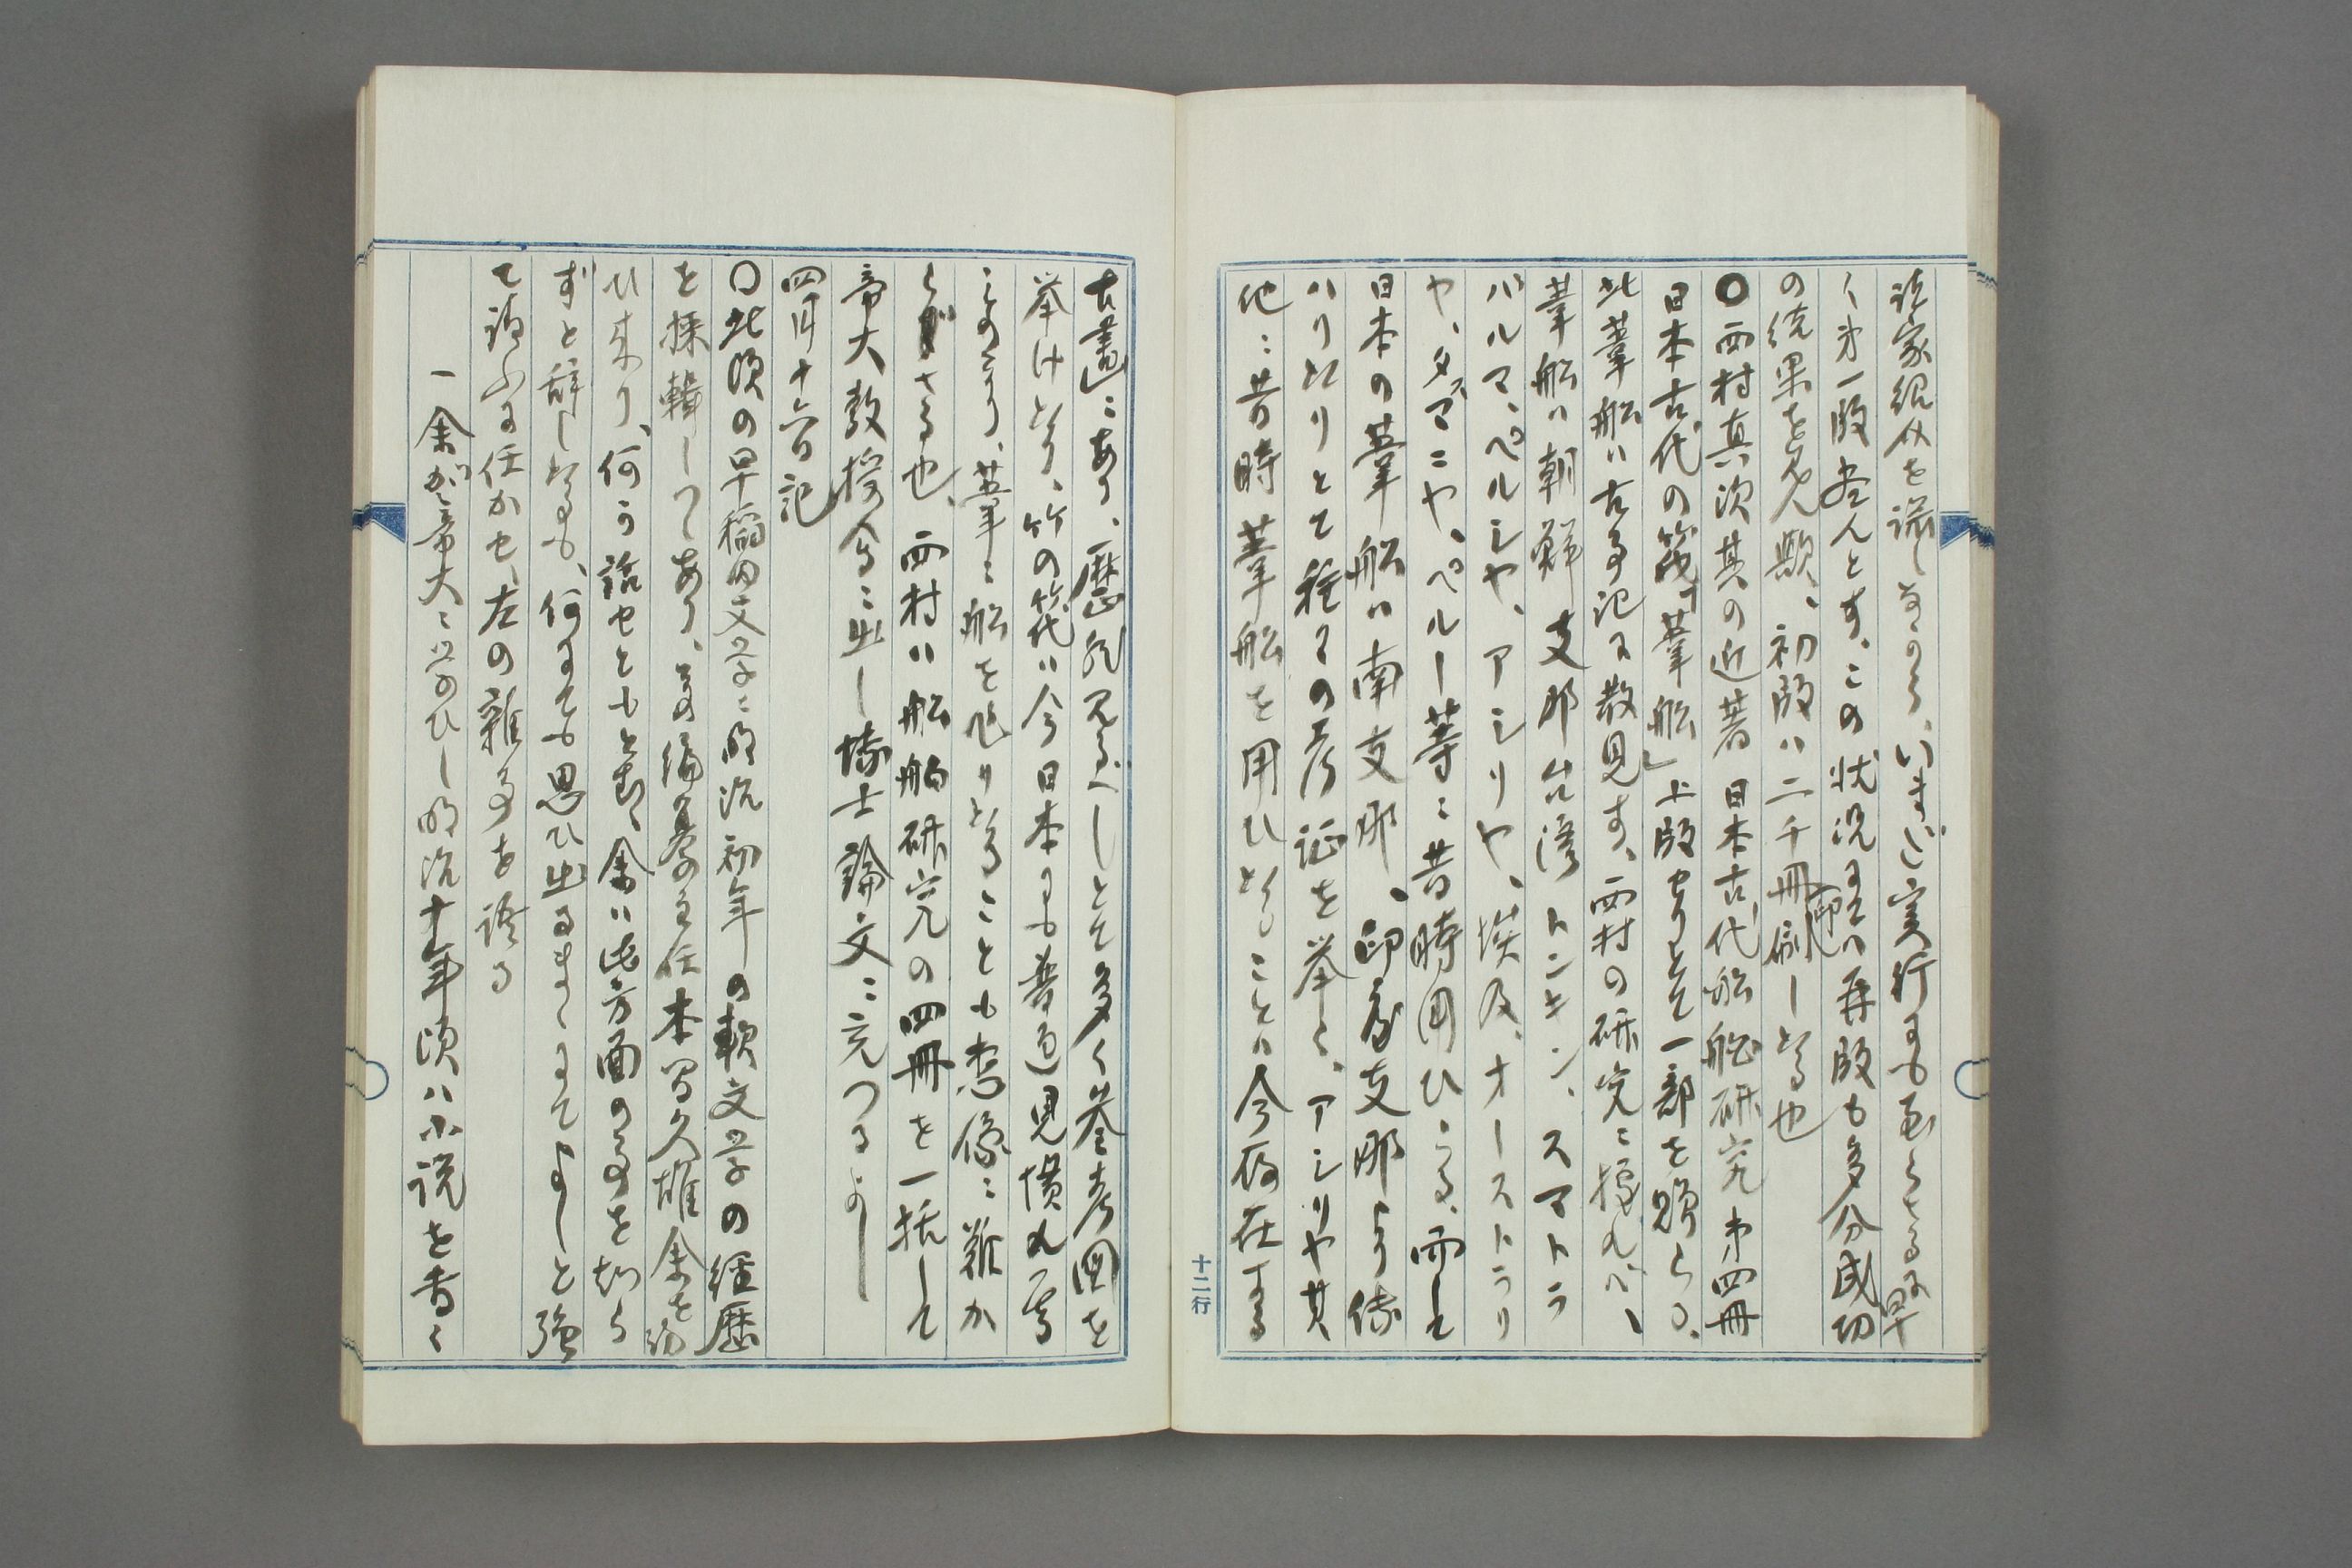 諸家紹介を謀しなるる、いまだ実行にも至らさるに早
く第一版尽んとす、この状況にては再版も多分成功
の結果を見ん歟、初版ハ二千冊印刷しとる也
〇西村真次其の近著日本古代船舶研究第四冊
日本古代の筏「葦船」上版せりとて一部を贈らる、
此葦船ハ古事記に散見す、西村の研究ニ據れハ、
葦船ハ朝鮮支那台湾トンキン、スマトラ
バルマ、ペルシヤ、アシリヤ、埃及、オーストラリ
ヤ、タズマニヤ、ペルー等ニ昔時用ひらる、而して
日本の葦船ハ南支那、印度支那より伝
ハりたりとて種々の考証を挙く、アシリヤ其
他ニ昔時葦船を用ひたることハ今存在する
十二行
古畫ニあり、歴然見るべしとて多く参考図を
挙けたり、竹の筏ハ今日本にも普通見慣れ居
ことなり、葦ニ船を作りたることも想像ニ難か
らさる也、西村ハ船舶研究の四冊を一括して
帝大教授会ニ出し博士論文ニ充つるよし
四月十六日記
〇此頃の早稲田文学ニ明治初年の軟文学の経歴
を採輯しつゝあり、其編纂の主任本間久雄余を訪
ひ来り、何う話せともとむ、余ハ此方面の事を知ら
ずと辞したるも、何にても思ひ出るまゝにてよしと強
て請ふに任かせ、左の雑事を語る
一余が帝大ニ学ひし明治十年頃ハ小説を書く